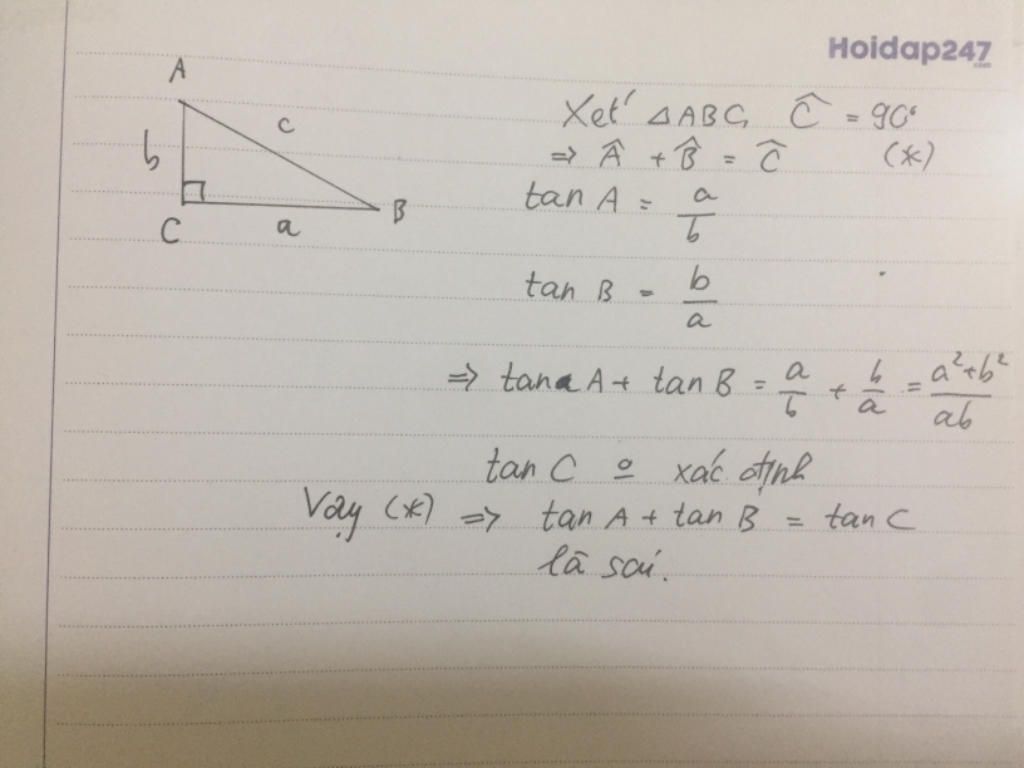 Hoidap247
.com
A
c
b
C
a
B
Xét ΔABC, Ĉ = 90°
⇒ Â + B̂ = Ĉ (*)
tan A = a/b
tan B = b/a
⇒ tana A + tan B = a/b + b/a = (a²+b²)/ab
tan C xác định
Vậy (*) ⇒ tan A + tan B = tan C
là sai.